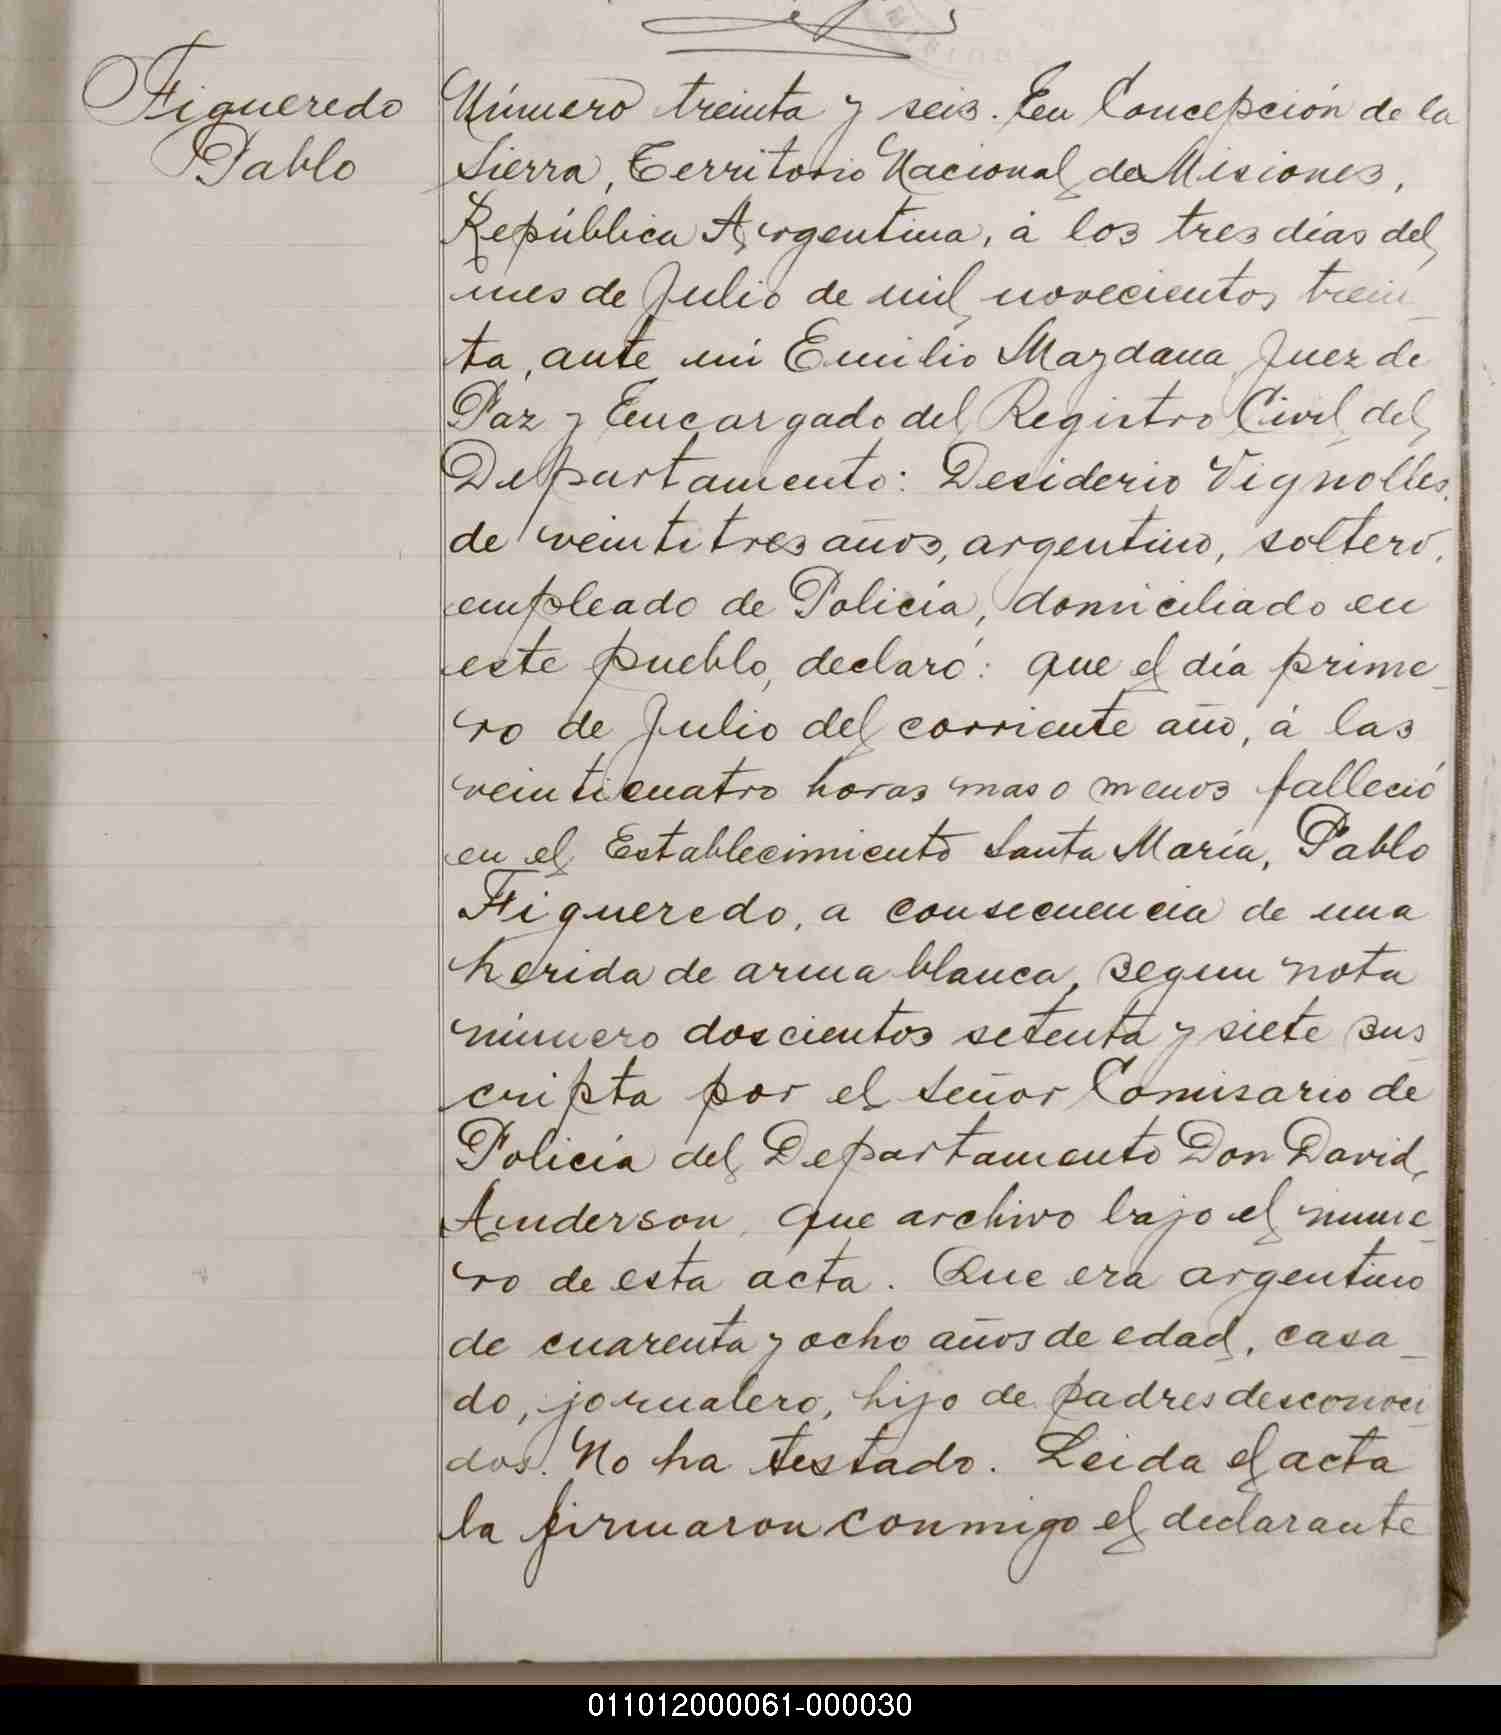 Figueredo
Pablo
Número treinta y seis. En Concepción de la
Sierra, Territorio Nacional de Misiones,
República Argentina, á los tres días del
mes de Julio de mil novecientos trein
ta, ante mi Emilio Maydana Juez de
Paz y Encargado del Registro Civil del
Departamento: Desiderio Vignolles,
de veintitres años, argentino, soltero,
empleado de Policía, domiciliado en
este pueblo, declaró: que el día prime_
ro de Julio del corriente año, á las
veinticuatro horas mas o menos falleció
en el Establecimiento Santa María, Pablo
Figueredo, a consecuencia de una
herida de arma blanca, segun nota
número doscientos setenta y siete sus
cripta por el Señor Comisario de
Policía del Departamento Don David
Anderson, que archivo bajo el núme_
ro de esta acta. Que era argentino
de cuarenta y ocho años de edad, casa_
do, jornalero, hijo de padres desconoci
dos. No ha testado. Leida el acta
la firmaron conmigo el declarante
011012000061-000030